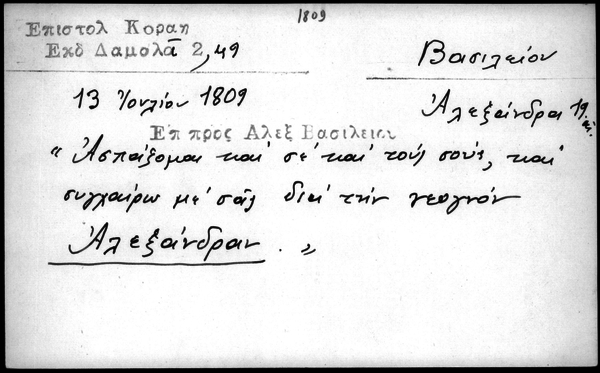 1809
Επιστολ Κοραη
Εκδ Δαμαλᾶ 2, 49
Βασιλείου
13 Ἰουλίου 1809
Ἀλεξάνδρα 19
Επ προς Αλεξ Βασιλειου
" Ἀσπάζομαι καὶ σὲ καὶ τοὺς σούς, καὶ
συγχαίρω μὲ σᾶς διὰ τὴν νεογνὸν
Ἀλεξάνδραν . "